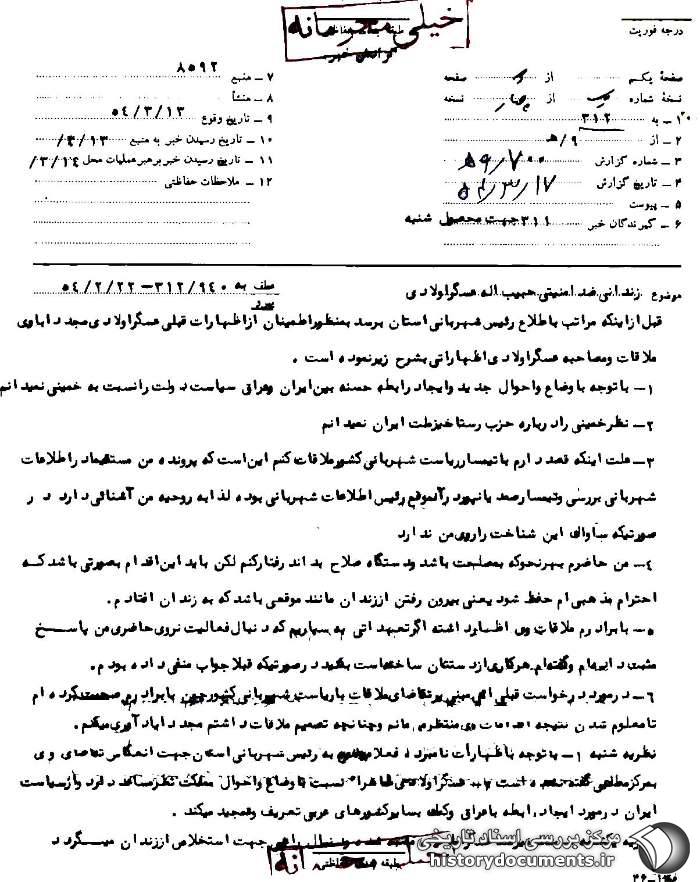 درجه فوریت
خیلی محرمانه
طبقه بندی حفاظتی
گزارش خبر
صفحهٔ یکم از صفحه
نسخهٔ شماره از نسخه
۱ ـ به ۳۱۲
۲ ـ از ۹/هـ
۳ ـ شماره گزارش
۴ ـ تاریخ گزارش
۵ ـ پیوست
۶ ـ گیرندگان خبر ۳۱۱ جهت محصول شنبه
۷ ـ منبع ۸۵۹۲
۸ ـ منشأ
۹ ـ تاریخ وقوع ۵۴/۳/۱۳
۱۰ ـ تاریخ رسیدن خبر به منبع ۳/۱۳/
۱۱ ـ تاریخ رسیدن خبر برهبر عملیات محل ۳/۱۴/
۱۲ ـ ملاحظات حفاظتی
موضوع زندانی ضد امنیتی حبیب اله عسگراولادی
عطف به ۳۱۲/۹۴۰ ـ ۵۴/۲/۲۲
قبل ازاینکه مراتب باطلاع رئیس شهربانی استان برسد بمنظور اطمینان ازاظهارات قبلی عسگراولادی مجددا باوی
ملاقات ومصاحبه عسگراولادی اظهاراتی بشرح زیرنموده است .
۱ـ باتوجه باوضاع واحوال جدید وایجاد رابطه حسنه بین ایران وعراق سیاست دولت رانسبت به خمینی نمیدانم
۲ـ نظرخمینی رادرباره حزب رستاخیزملت ایران نمیدانم
۳ـ علت اینکه قصد دارم باتیمسارریاست شهربانی کشورملاقات کنم این است که پرونده من مستقیماد راطلاعات
شهربانی بررسی وتیمسارصمدیانپورد رآنموقع رئیس اطلاعات شهربانی بوده لذا به روحیه من آشنائی دارد در
صورتیکه ساواک این شناخت راروی من ندارد
۴ـ من حاضرم بهرنحوکه بمصلحت باشد ودستگاه صلاح بداند رفتارکنم لکن باید این اقدام بصورتی باشد کـه
احترام مذهبی ام حفظ شود یعنی بیرون رفتن اززندان مانند موقعی باشد که به زندان افتادم .
۵ـ بابرادرم ملاقات وی اظهارداشته اگرتعهداتی به بسپاریم که دنبال فعالیت نروی حاضری من پاسخ
مثبت داده ام وگفته ام هرکاری ازدستتان ساخته است بکنید درصورتیکه قبلا جواب منفی داده بودم .
۶ـ درمورد درخواست قبلی ام مبنی برتقاضای ملاقات باریاست شهربانی کشورچون بابرادرم صحبت کرده ام
تامعلوم شدن نتیجه اقدامات وی منتظرمی مانم وچنانچه تصمیم ملاقات داشتم مجددا یادآوری میکنم .
نظریه شنبه ۱ـ باتوجه باظهارات نامبرده فعلا به رئیس شهربانی استان جهت انعکاس تقاضای وی
به مرکز مطلبی گفته نشده است عسگراولادی ظاهرا نسبت باوضاع واحوال مملکت نظرمساعد دارد وازسیاست
ایران درمورد ایجاد رابطه باعراق وکمک بسایرکشورهای عربی تعریف وتمجید میکند .
جهت استخلاص اززندان میگردد
خیلی محرمانه
طبقه بندی حفاظتی
مرکز بررسی اسناد تاریخی
historydocuments.ir